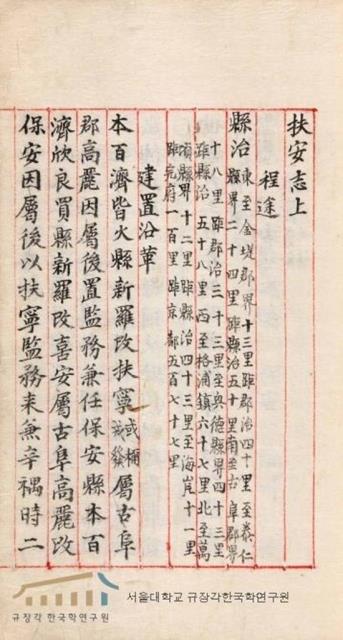 扶安志上
程途
縣治東至金堤郡界十三里距郡治四十里至泰仁
縣界二十四里距縣治五十里南至古阜郡界
十八里距郡治三十三里至興德縣界四十三里
距縣治五十八里西至格浦鎮六十七里北至萬
頃縣界十二里距縣治四十三里至海岸十一里
距完府一百里距京都五百七十七里
建置沿革
本百濟皆火縣新羅改扶寧或稱戒發屬古阜
郡高麗因屬後置監務兼任保安縣本百
濟欣良買縣新羅改喜安屬古阜高麗改
保安因屬後以扶寧監務來兼辛禑時二
규장각 한국학연구원
서울대학교 규장각한국학연구원